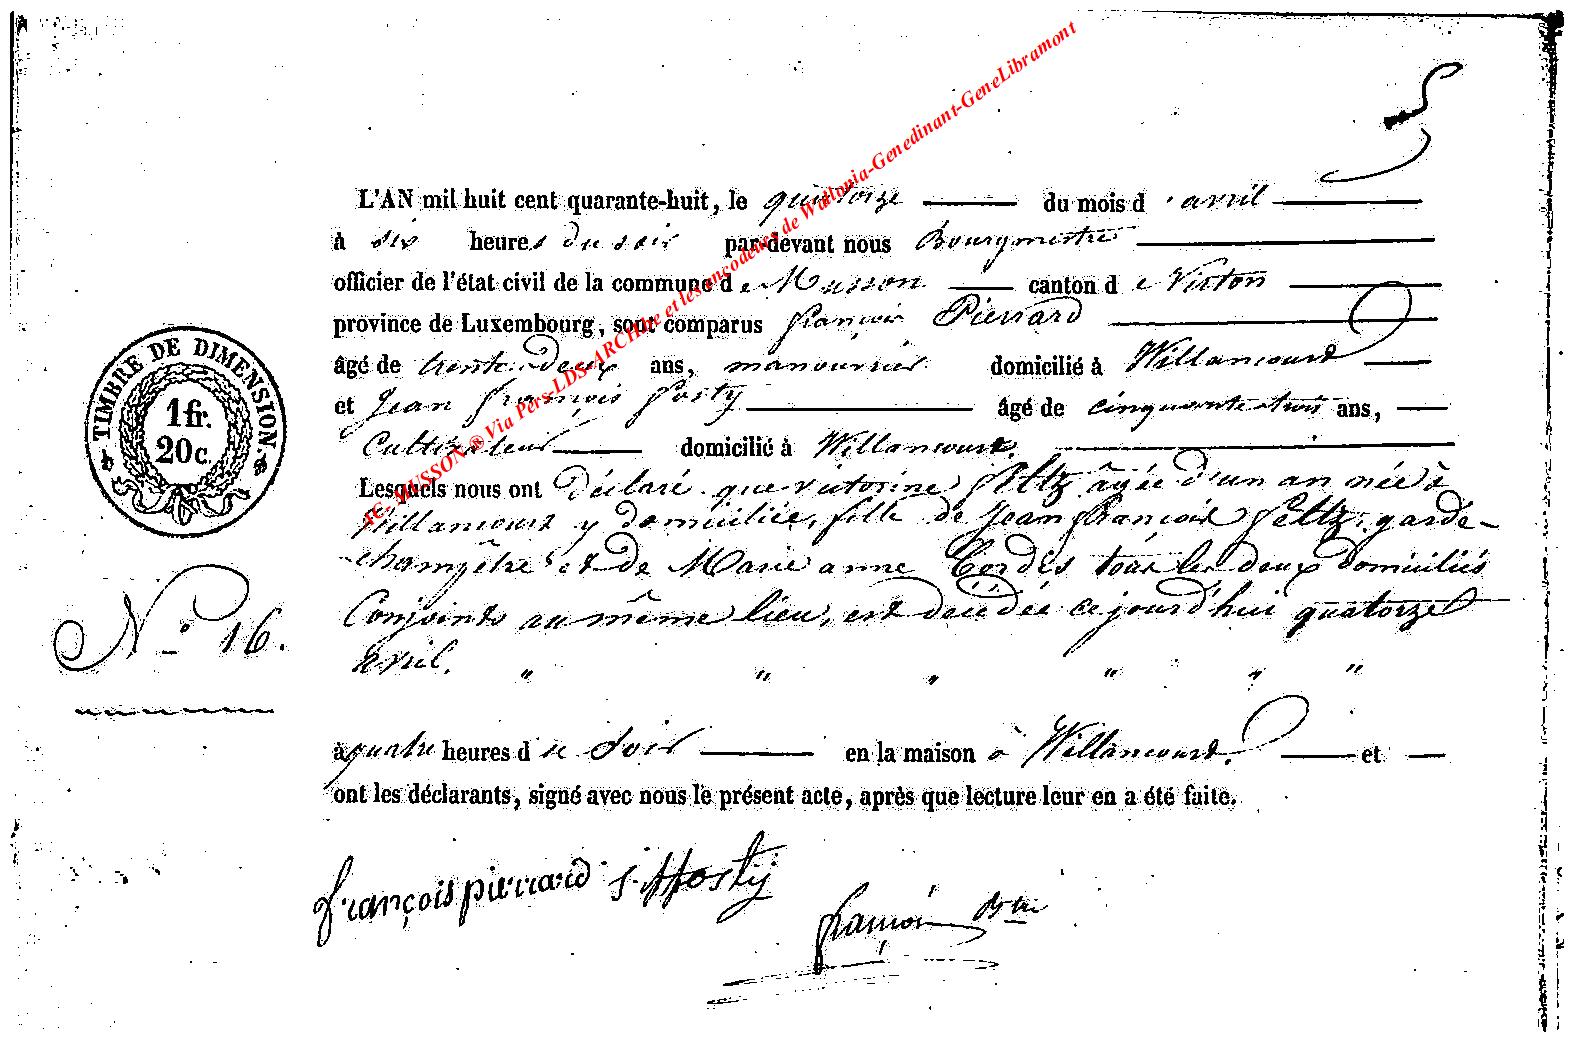 L'AN mil huit cent quarante-huit, le quatorze du mois d'avril
à six heures du soir par-devant nous Bourgmestre
officier de l'état civil de la commune de Musson canton de Virton
province de Luxembourg, sont comparus françois Pierrard
âgé de trente-deux ans, manouvrier domicilié à Willancourt
et Jean françois fosty âgé de cinquante trois ans,
Cultivateur domicilié à Willancourt.
Lesquels nous ont déclaré que victorine feltz âgée d'un an née à
Willancourt y domiciliée, fille de Jean françois feltz, garde-
champêtre et de Marie anne Cordès tous les deux domiciliés
Conjoints au même lieu, est décédée ce jourd'hui quatorze
avril. " " " " " "
à quatre heures d u soir en la maison à Willancourt. et
ont les déclarants, signé avec nous le présent acte, après que lecture leur en a été faite.
françois pierrard J. ffosty
françois Bmi
TIMBRE DE DIMENSION.
1 fr.
20 c.
N.° 16.
EC-MUSSON ® Via Pers-LDS-ARCHive et les encodeurs de Wallonia-Genedinant-GeneLibramont